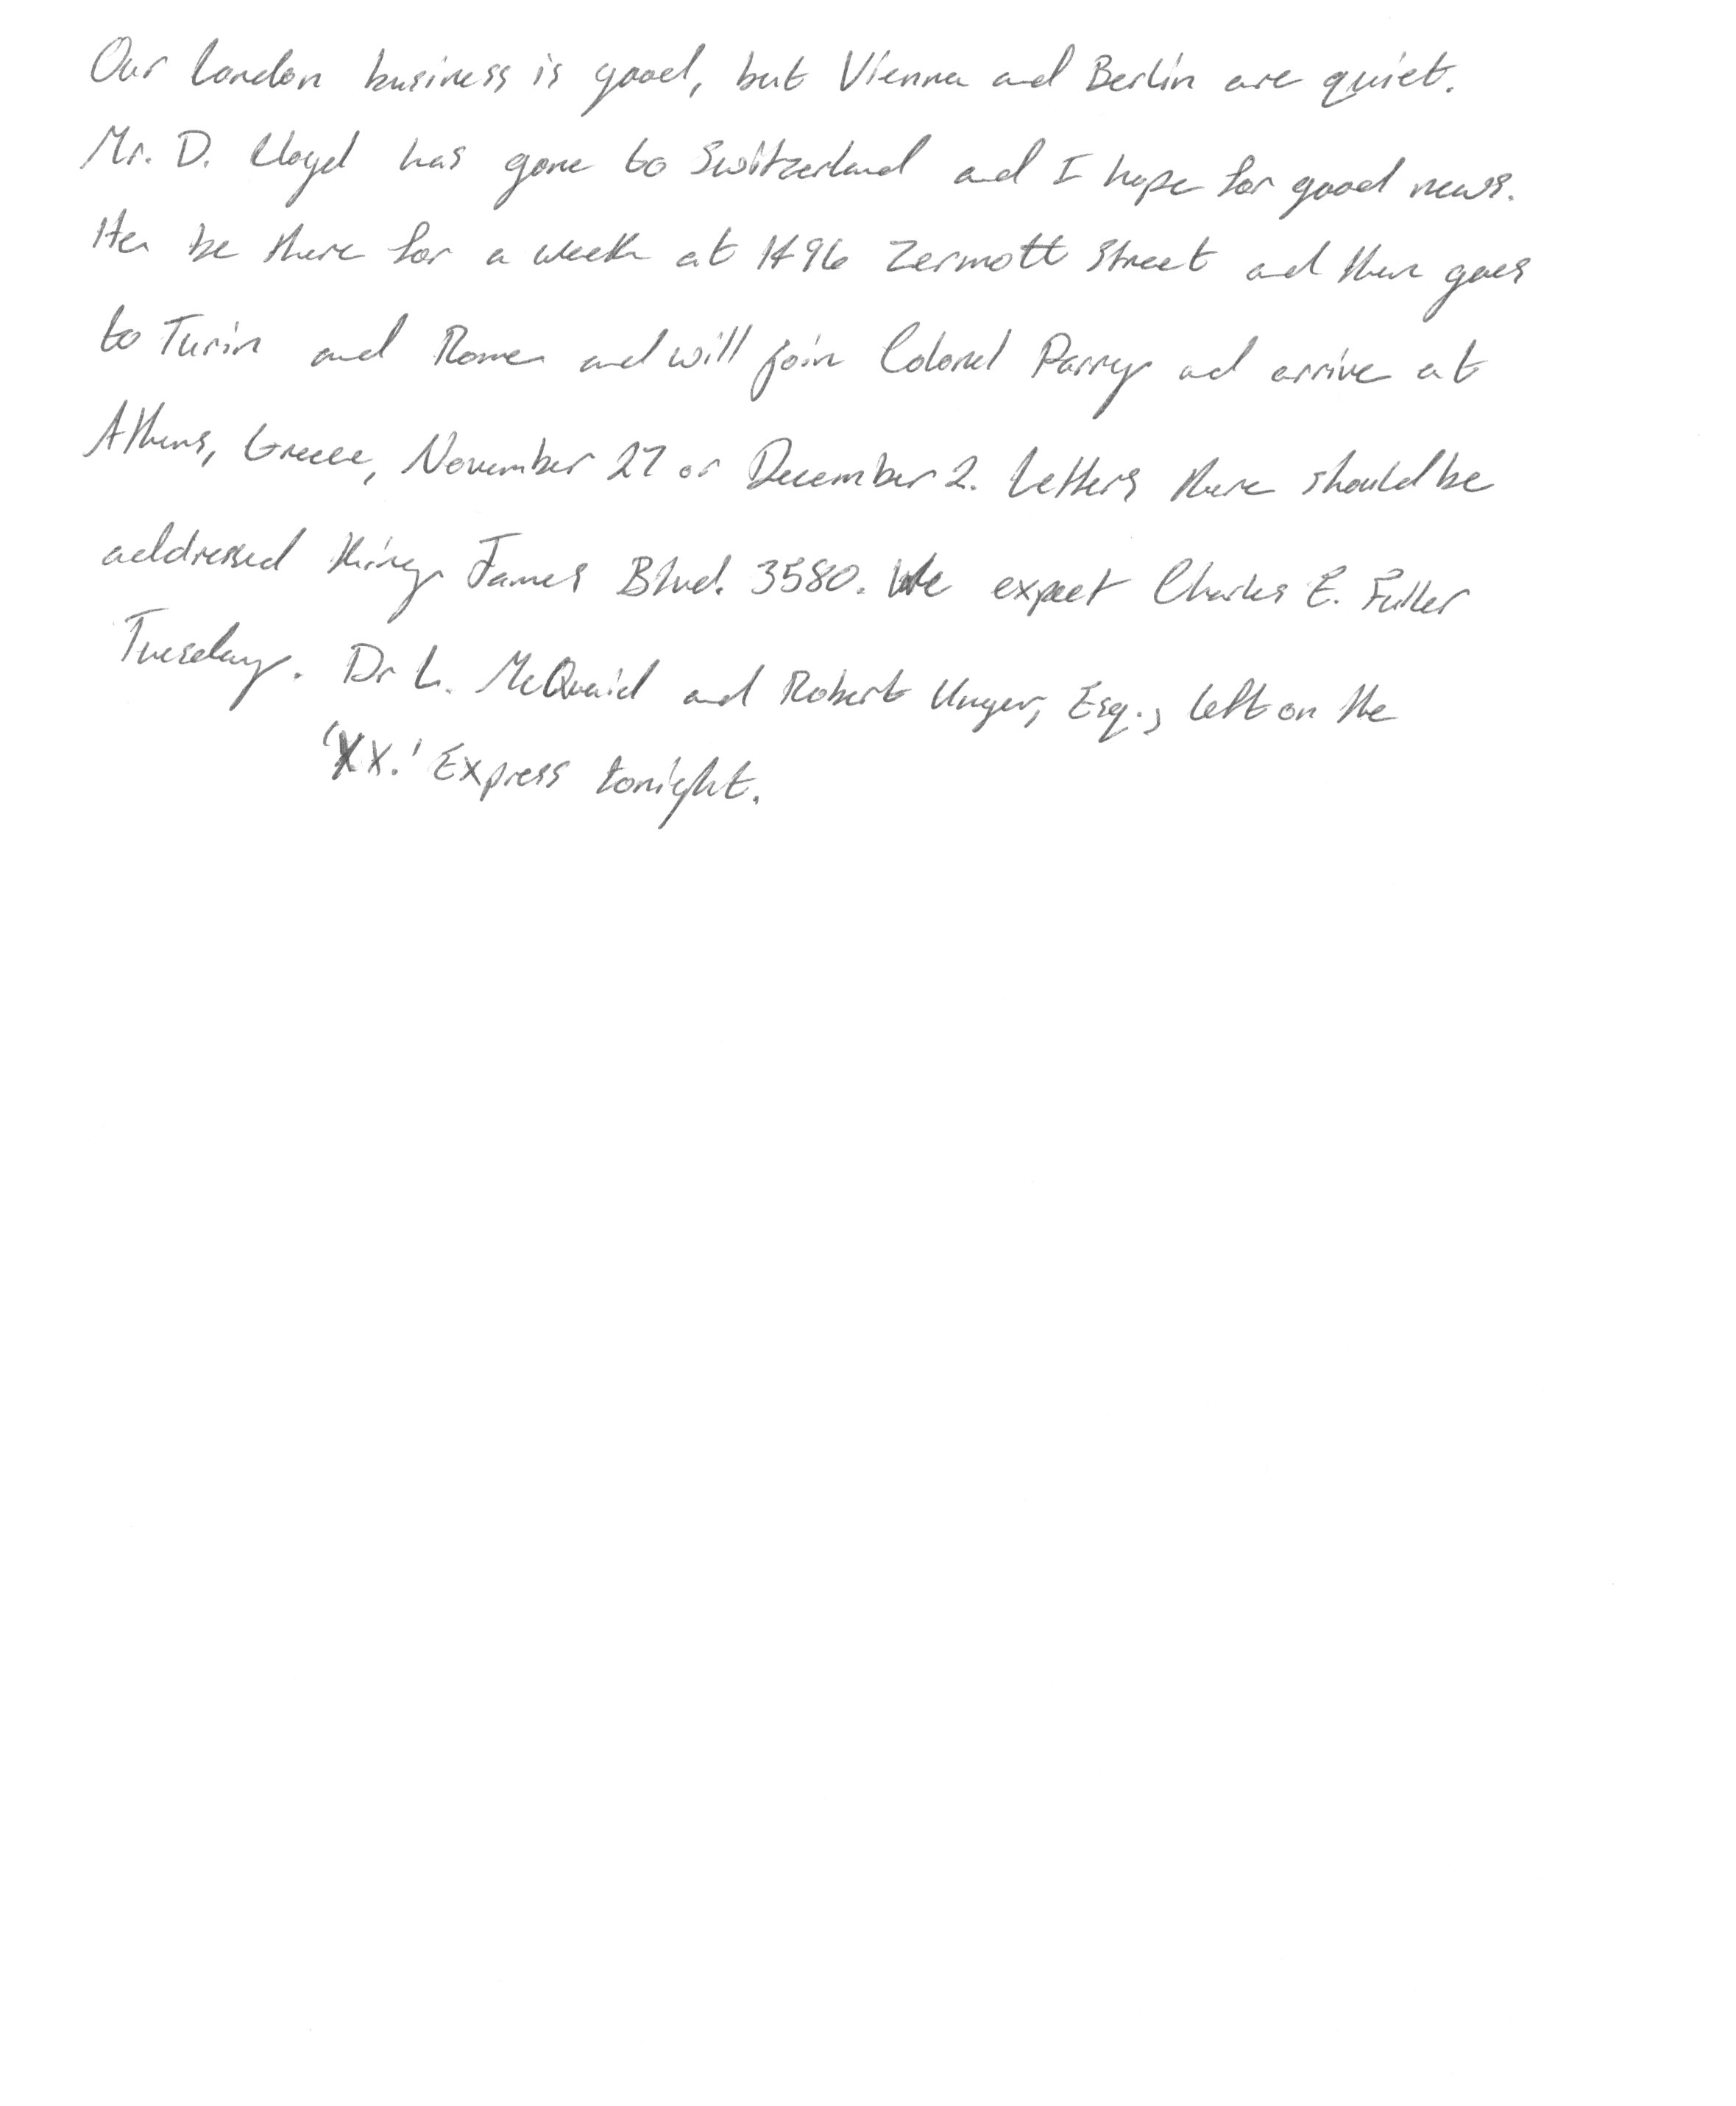 Our London business is good, but Vienna and Berlin are quiet.
Mr. D. Lloyd has gone to Switzerland and I hope for good news.
He be there for a week at 1496 Zermott Street and then goes
to Turin and Rome and will join Colonel Parry and arrive at
Athens, Greece, November 27 or December 2. Letters there should be
addressed King James Blvd. 3580. We expect Charles E. Fuller
Tuesday. Dr L. McQuaid and Robert Unger, Esq., left on the
'XX.' Express tonight.